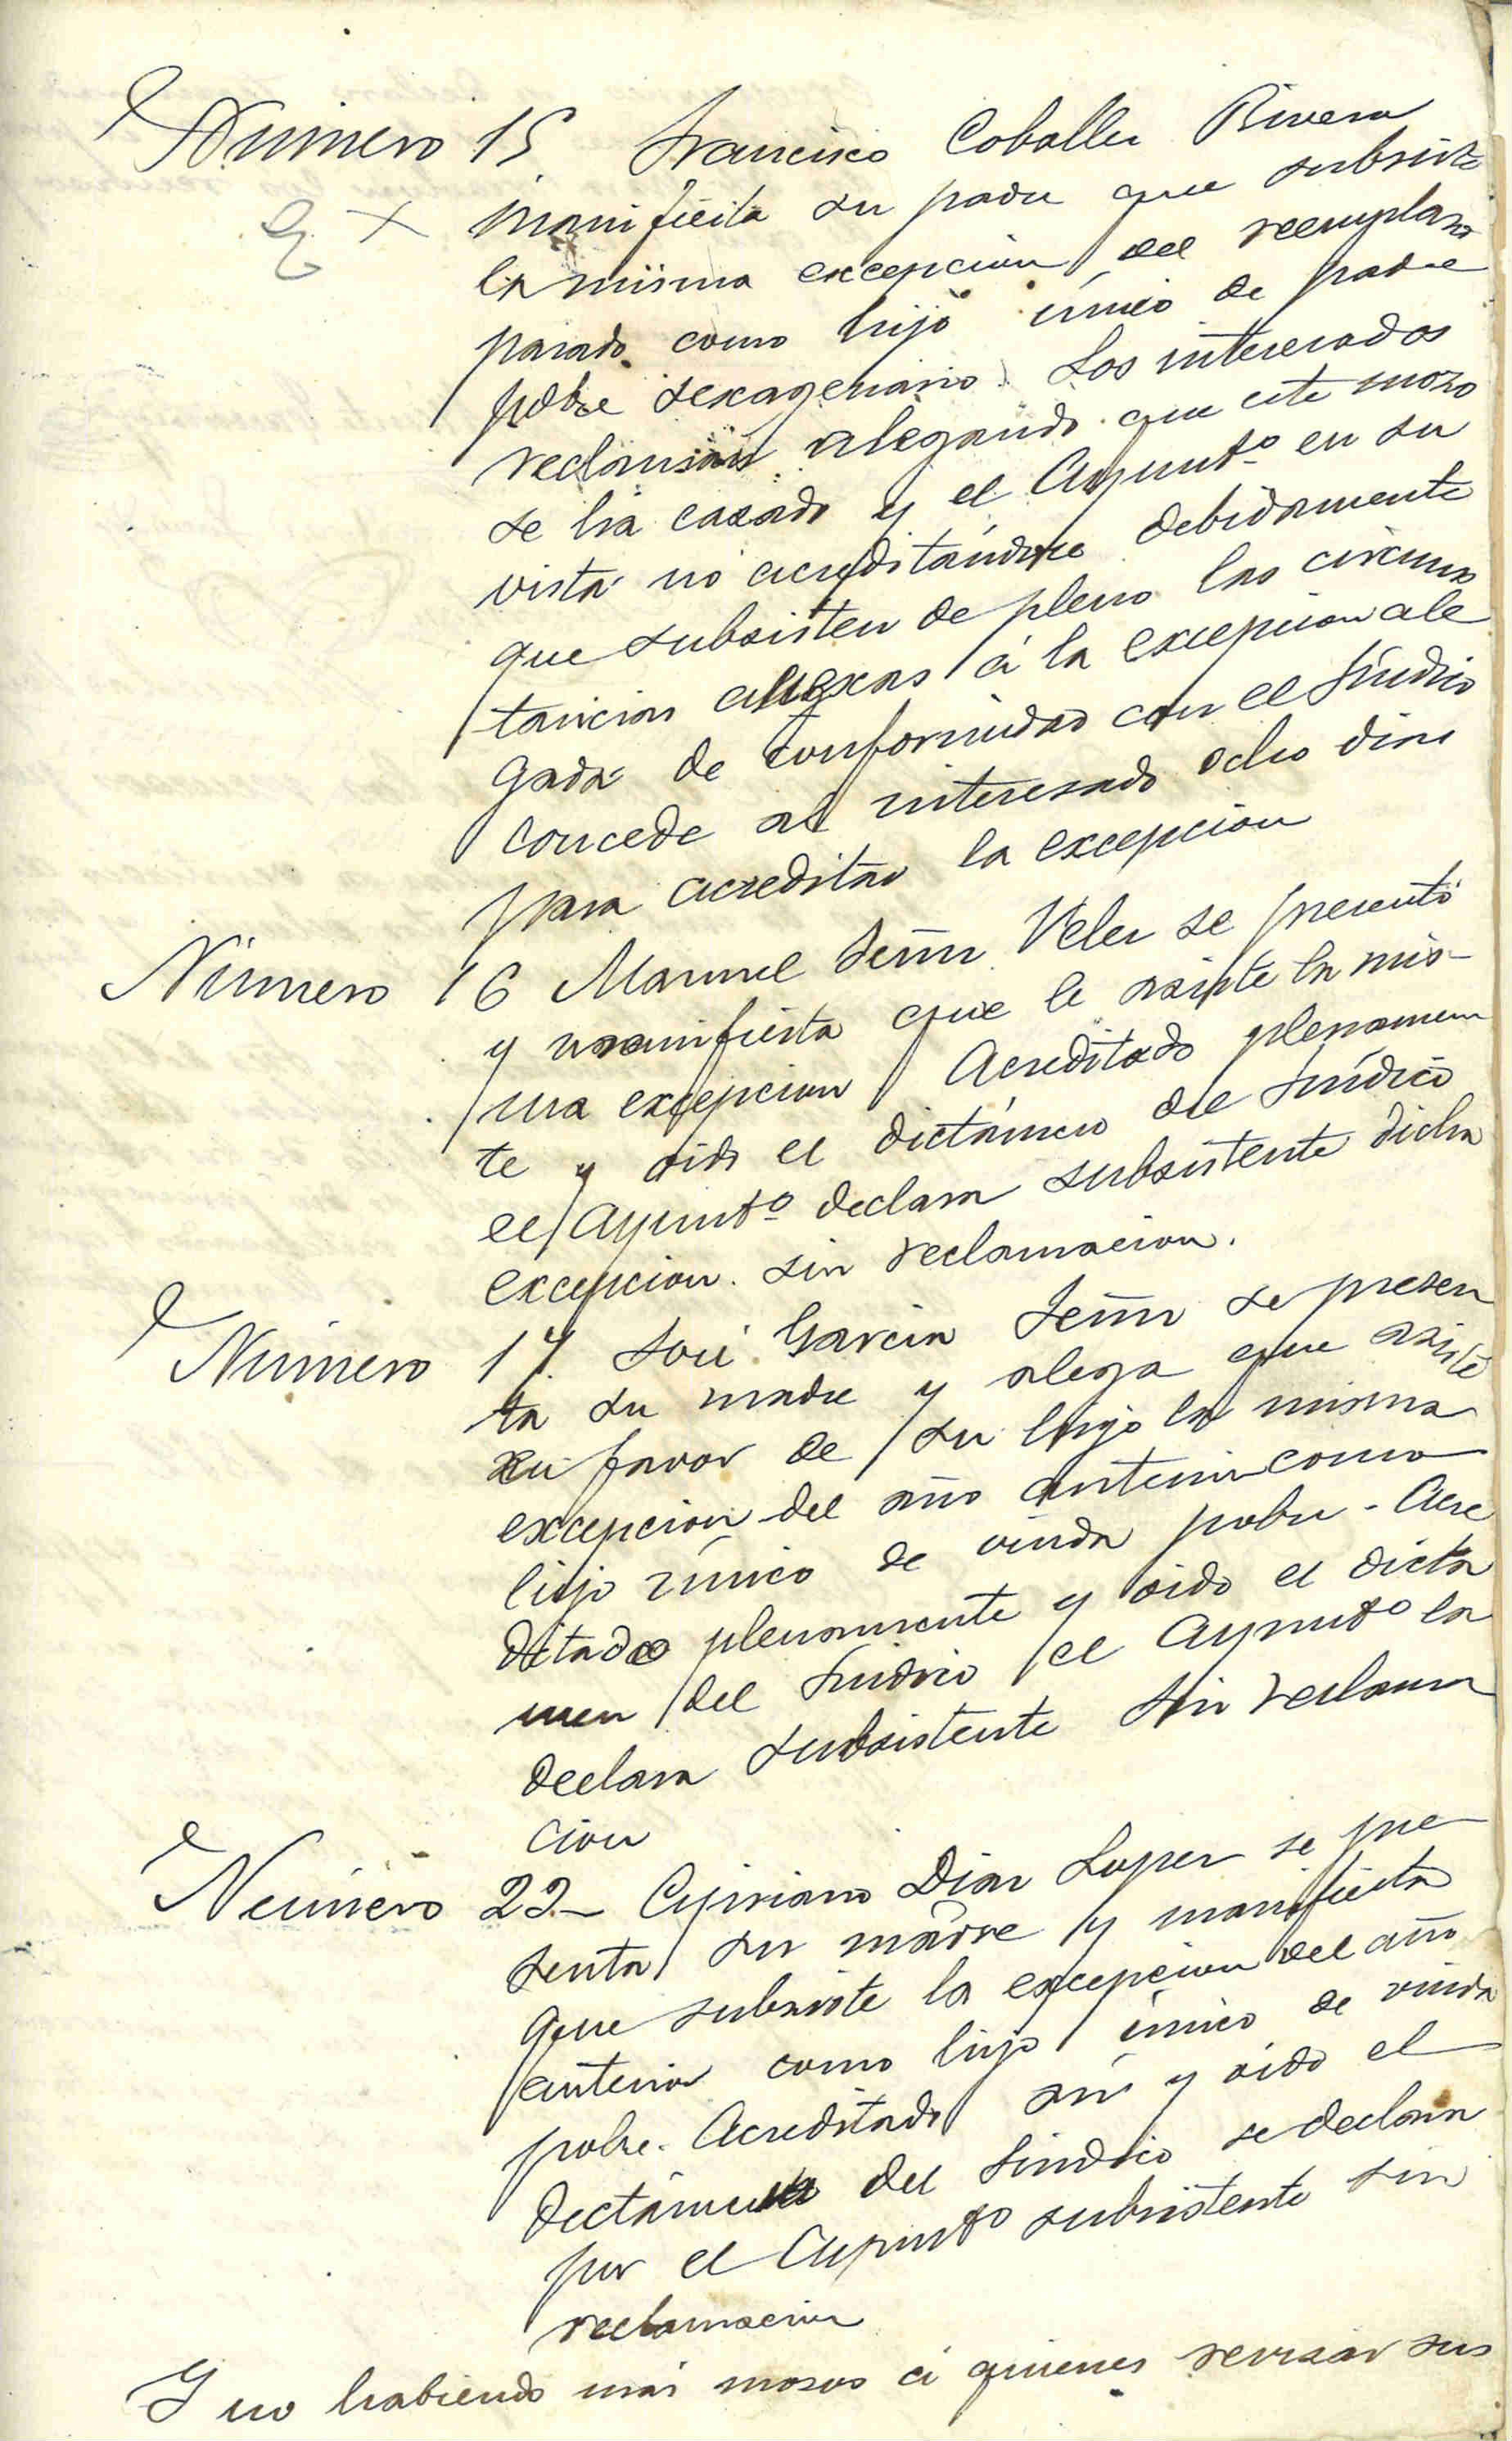 Número 15 Francisco Caballer Rivera
manifiesta su padre que subsiste
la misma excepcion del reemplazo
pasado como hijo único de padre
pobre sexagenario. Los interesados
reclaman alegando que este mozo
se ha casado y el Ayuntº en su
vista no acreditándose debidamente
que subsisten de pleno las circuns
tancias anexas á la excepcion ale
gada de conformidad con el Síndico
concede al interesado ocho dias
para acreditar la excepcion
Número 16 Manuel Velez se presentó
y manifiesta que le asiste la mis-
ma excepcion Acreditado plenamen
te y oido el dictámen del Síndico
el Ayuntº declara subsistente dicha
excepcion. sin reclamacion.
Número 17 José Garcia se presen
ta su madre y alega que asiste
en favor de su hijo la misma
excepcion del año anterior como
hijo único de viuda pobre - Acre
ditado plenamente y oido el dicta
men del Síndico el Ayuntº la
declara subsistente sin reclama
cion
Número 22- Cipriano Diaz Lopez se pre
senta su madre y manifiesta
que subsiste la excepcion del año
anterior como hijo único de viuda
pobre. Acreditado asi y oido el
dectámen del Síndico se declara
por el Ayuntº subsistente sin
reclamacion
Y no habiendo más mozos á quienes revisar sus